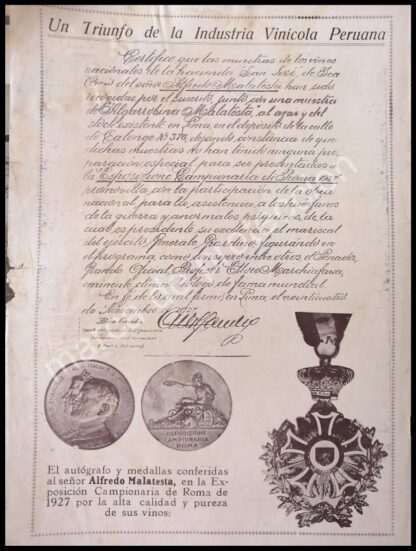 Un Triunfo de la Industria Vinícola Peruana
Certifico que las muestras de los vinos
nacionales de la hacienda San José, de Ica
(Perú) del señor Alfredo Malatesta han sido
recogidas por el suscrito, junto con una muestra
de "Algarrobina Malatesta", al azar y del
stock existente en Lima en el depósito de la calle
de Calonge Nº 376, dejando constancia de que
dichas muestras no han tenido ninguna pre-
paración especial para ser presentadas a
la Exposizione Campionaria de Roma 1927
promovida, con la participación de la
nacional para la asistencia a los huérfanos
de la guerra y anormales psíquicos, de la
cual es presidente su excelencia el mariscal
del ejército figurando en
el programa, como entre otros el Senador,
Grande Oficial, Profesor Marchiafava,
eminente de fama mundial.
En fe de lo cual firmo, en Lima, el veinticuatro
de Noviembre de
ESPOSIZIONE
CAMPIONARIA
ROMA
El autógrafo y medallas conferidas
al señor Alfredo Malatesta, en la Ex-
posición Campionaria de Roma de
1927 por la alta calidad y pureza
de sus vinos.